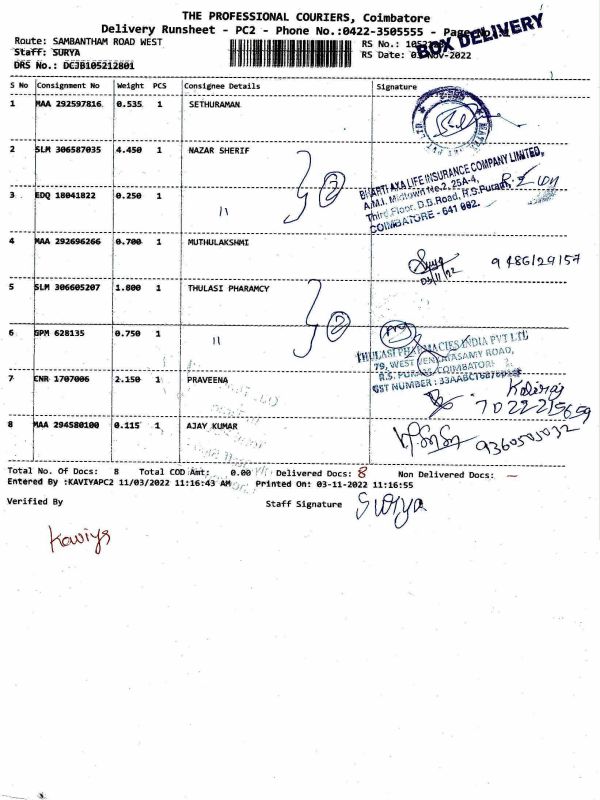 THE PROFESSIONAL COURIERS, Coimbatore
Delivery Runsheet - PC2 - Phone No.:0422-3505555 - Page No.
BOX DELIVERY
Route: SAMBANTHAM ROAD WEST
RS No.:
Staff: SURYA
RS Date: 03-NOV-2022
DRS No.: DCJB105212801
S No Consignment No Weight PCS Consignee Details Signature
1 MAA 292597816 0.535 1 SETHURAMAN
2 SLM 306587035 4.450 1 NAZAR SHERIF
2
BHARTI AXA LIFE INSURANCE COMPANY LIMITED,
A.M.I. Midtown No.2, 25A-4,
Third Floor, D.B.Road, R.S.Puram,
COIMBATORE - 641 002.
3 EDQ 18041822 0.250 1 11
4 MAA 292696266 0.700 1 MUTHULAKSHMI
03/11/22
9486129157
5 SLM 306605207 1.800 1 THULASI PHARAMCY
2
6 GPM 628135 0.750 1 11
THULASI PHARMACIES INDIA PVT LTD
79, WEST VENKATASAMY ROAD,
R.S. PURAM, COIMBATORE 2.
GST NUMBER :
7 CNR 1707006 2.150 1 PRAVEENA
8 MAA 294580100 0.115 1 AJAY KUMAR
9360505032
Total No. Of Docs: 8 Total COD Amt: 0.00 Delivered Docs: 8 Non Delivered Docs: -
Entered By :KAVIYAPC2 11/03/2022 11:16:43 AM Printed On: 03-11-2022 11:16:55
Verified By Staff Signature Surya
Kaviya